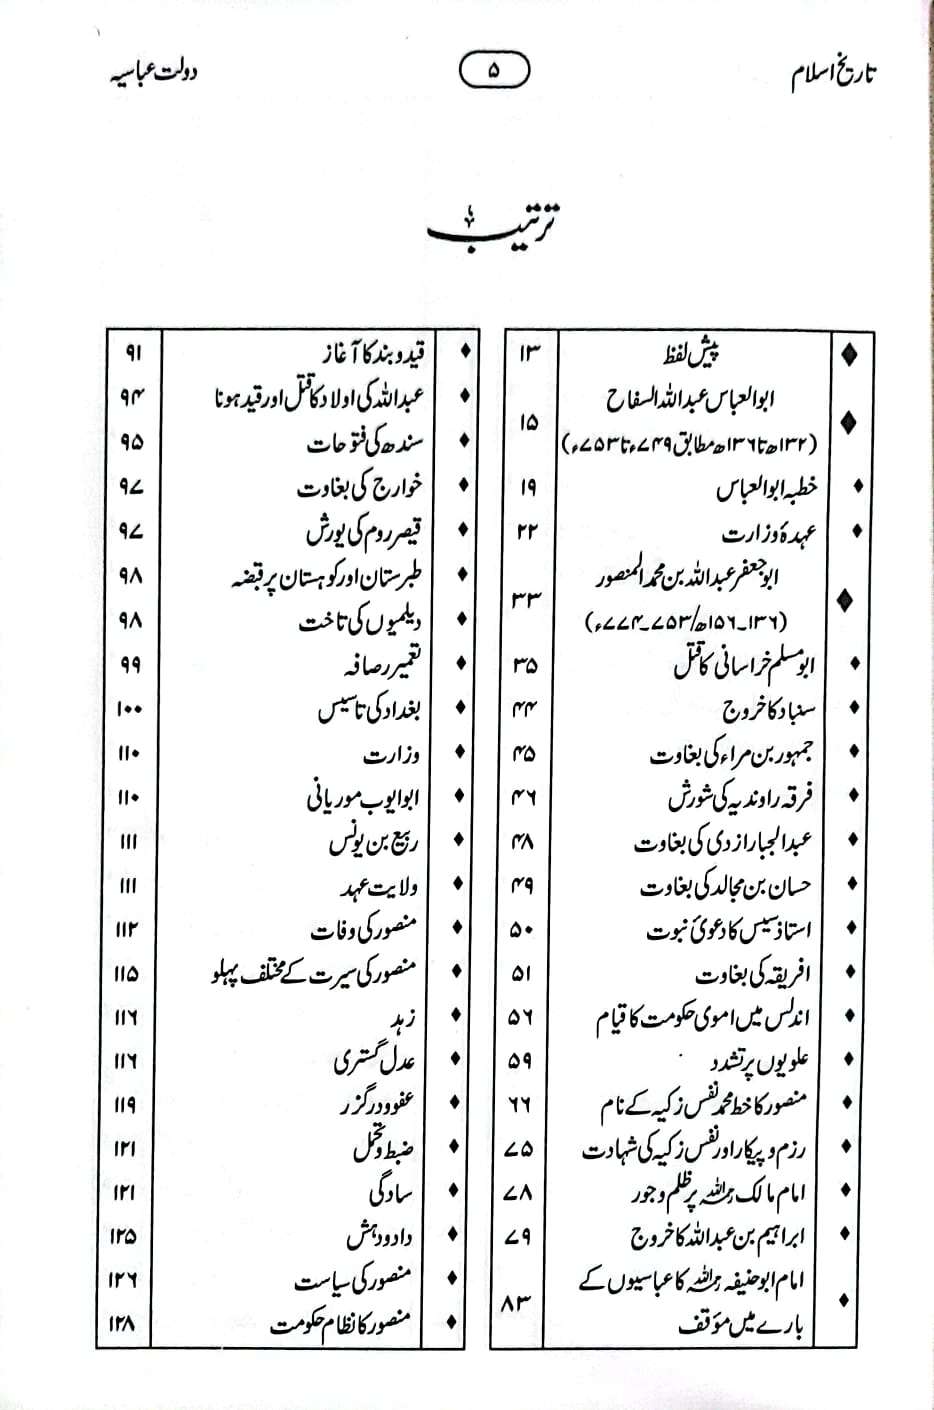 تاریخ اسلام ۵ دولت عباسیہ
ترتیب
♦ پیش لفظ ۱۳
♦ ابوالعباس عبداللہ السفاح ۱۵
(۱۳۲ھ تا ۱۳۶ھ مطابق ۷۴۹ء تا ۷۵۳ء)
♦ خطبہ ابوالعباس ۱۹
♦ عہدۂ وزارت ۲۲
♦ ابوجعفر عبداللہ بن محمد المنصور ۳۳
(۱۳۶۔۱۵۶ھ/۷۵۳۔۷۷۴ء)
♦ ابومسلم خراسانی کا قتل ۳۵
♦ سنباد کا خروج ۴۴
♦ جمہور بن مراء کی بغاوت ۴۵
♦ فرقہ راوندیہ کی شورش ۴۶
♦ عبدالجبار ازدی کی بغاوت ۴۸
♦ حسان بن مجالد کی بغاوت ۴۹
♦ استاذ سیس کا دعویٰ نبوت ۵۰
♦ افریقہ کی بغاوت ۵۱
♦ اندلس میں اموی حکومت کا قیام ۵۶
♦ علویوں پر تشدد ۵۹
♦ منصور کا خط محمد نفس زکیہ کے نام ۶۶
♦ رزم و پیکار اور نفس زکیہ کی شہادت ۷۵
♦ امام مالک رحمہ اللہ پر ظلم و جور ۷۸
♦ ابراہیم بن عبداللہ کا خروج ۷۹
♦ امام ابوحنیفہ رحمہ اللہ کا عباسیوں کے ۸۳
بارے میں مؤقف
♦ قید و بند کا آغاز ۹۱
♦ عبداللہ کی اولاد کا قتل اور قید ہونا ۹۴
♦ سندھ کی فتوحات ۹۵
♦ خوارج کی بغاوت ۹۷
♦ قیصر روم کی یورش ۹۷
♦ طبرستان اور کوہستان پر قبضہ ۹۸
♦ دیلمیوں کی تاخت ۹۸
♦ تعمیر رصافہ ۹۹
♦ بغداد کی تاسیس ۱۰۰
♦ وزارت ۱۱۰
♦ ابوایوب موریانی ۱۱۰
♦ ربیع بن یونس ۱۱۱
♦ ولایت عہد ۱۱۱
♦ منصور کی وفات ۱۱۲
♦ منصور کی سیرت کے مختلف پہلو ۱۱۵
♦ زہد ۱۱۶
♦ عدل گستری ۱۱۶
♦ عفو و درگزر ۱۱۹
♦ ضبط و تحمل ۱۲۱
♦ سادگی ۱۲۱
♦ داد و دہش ۱۲۵
♦ منصور کی سیاست ۱۲۶
♦ منصور کا نظام حکومت ۱۲۸